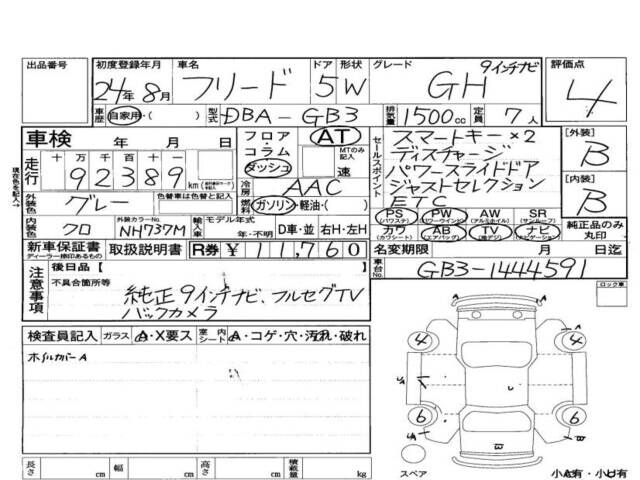 出品番号
初度登録年月 車名 ドア 形状 グレード 9インチナビ 評価点
24年8月 フリード 5 W GH 4
車歴 自家用・( ) 型式 DBA-GB3 排気量 1500cc 定員 7人
車検 年 月 日
フロア・コラム ダッシュ AT MTのみ記入 速
セールスポイント
スマートキー×2
ディスチャージ
パワースライドドア
ジャストセレクション
ETC
[外装] B
[内装] B
現在色を記入
走行 十 万 千 百 十 一
92389 km
冷房 AAC
外装色 グレー 色替車は色替と記入
燃料 ガソリン・軽油・( )
PS (パワステ) PW (パワーウインド) AW (アルミホイル) SR (サンルーフ)
カワ (カワシート) AB (エアバッグ) TV (地デジ) ナビ (ナビゲーション)
純正品のみ丸印
内装色 クロ 外装カラーNo. NH737M 輸入車 モデル年式 年・不明 D車・並 右H・左H
新車保証書 ディーラー捺印あるもの 取扱説明書 R券 ¥ 11,760
名変期限 月 日迄
車台No. GB3-1444591
注意事項
後日品[ ]
不具合箇所等
純正9インチナビ、フルセグTV
バックカメラ
ロック車
検査員記入 ガラス A・X要ス 室内シート A・コゲ・穴・汚れ・破れ
ホイルカバーA
4 4
6 6
スペア
小A有・小U有
長さ cm 幅 cm 高さ cm 積載量 kg